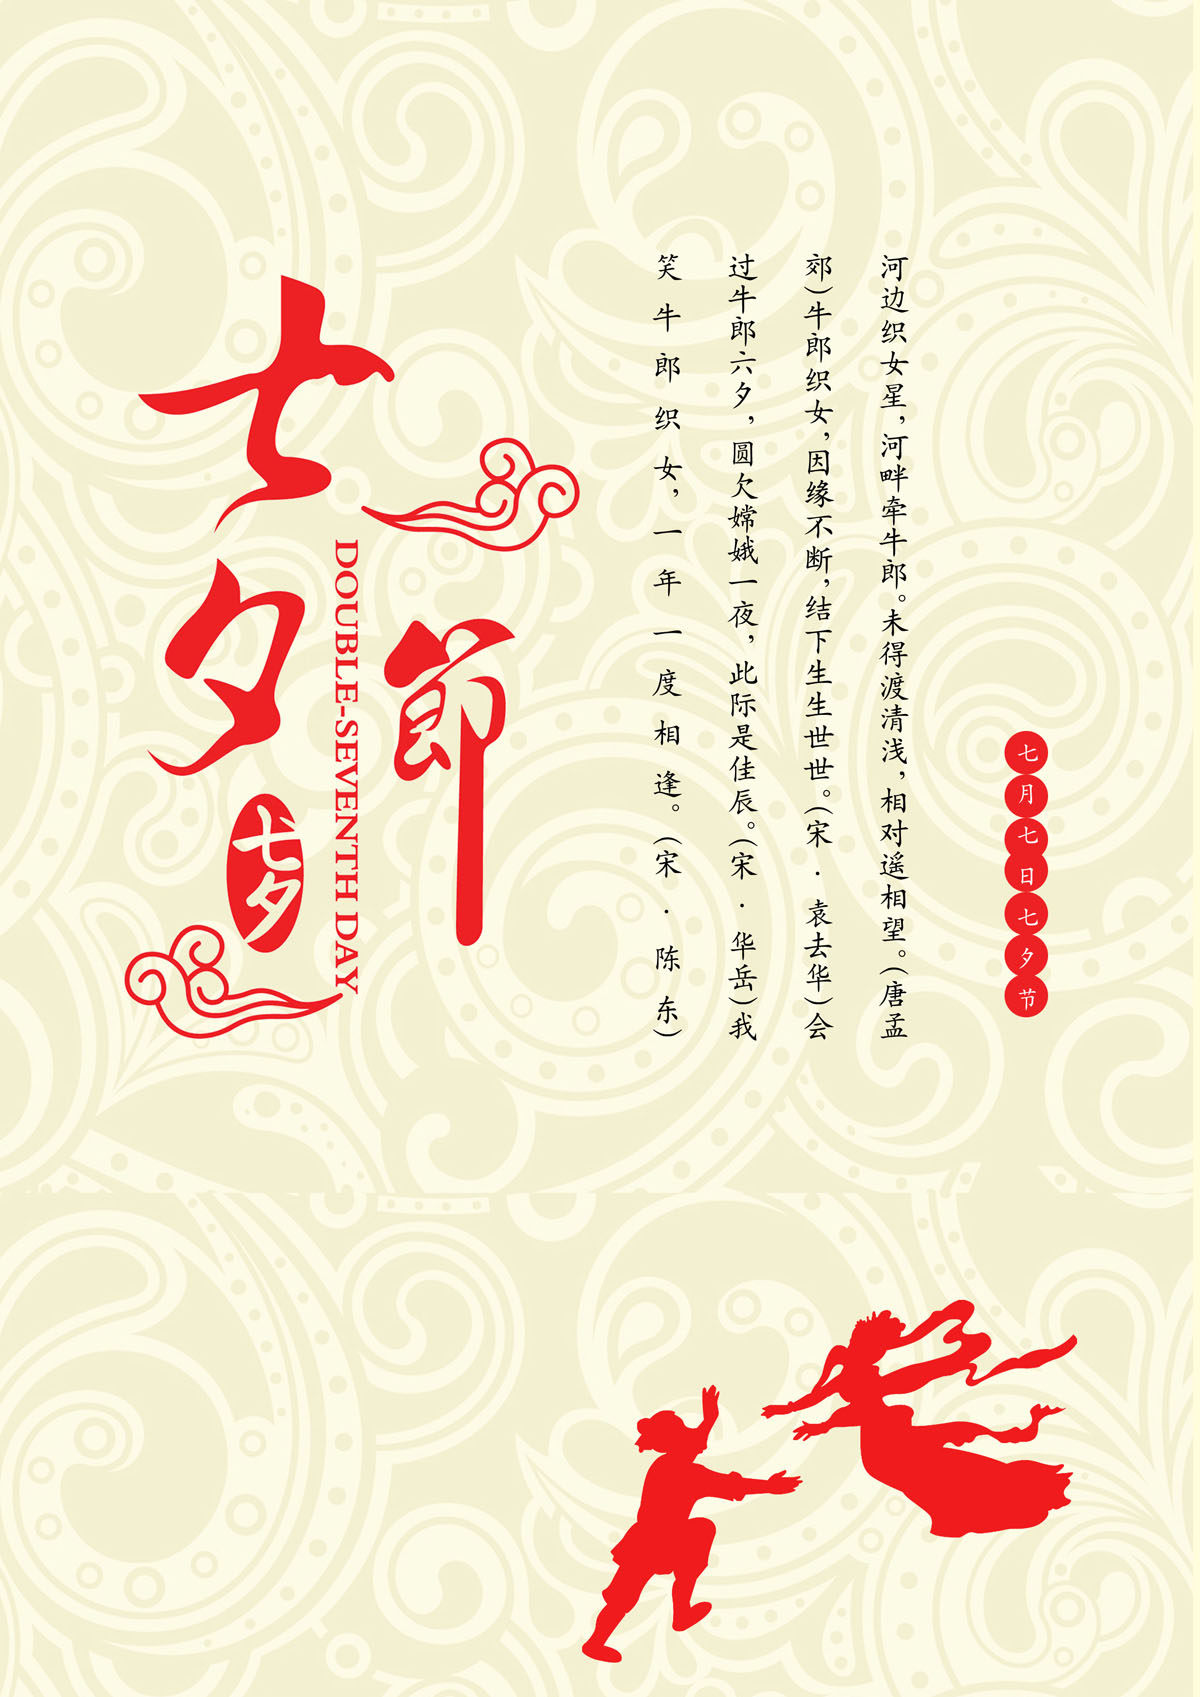 七月七日七夕节
河边织女星，河畔牵牛郎。未得渡清浅，相对遥相望。（唐孟
郊）牛郎织女，因缘不断，结下生生世世。（宋．袁去华）会
过牛郎六夕，圆欠嫦娥一夜，此际是佳辰。（宋．华岳）我
笑牛郎织女，一年一度相逢。（宋．陈东）
七夕
節
DOUBLE-SEVENTH DAY
七夕